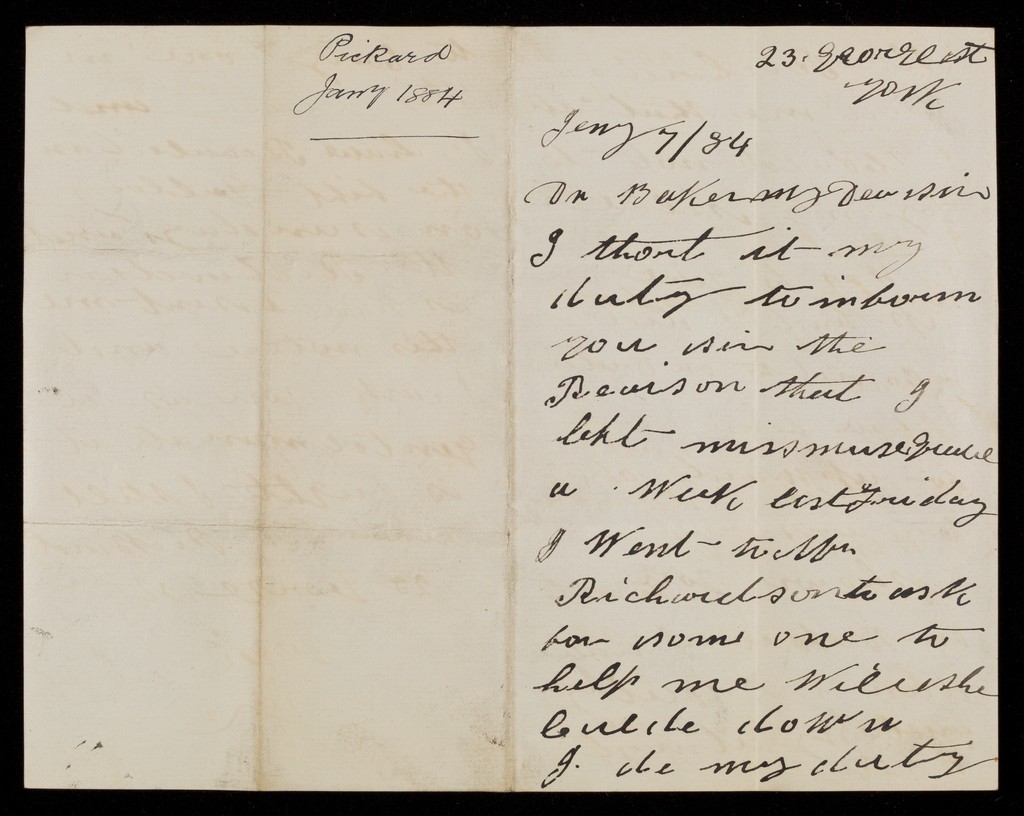 Pickard
Jany 1884
23. George st
York
Jeny 7/84
Dr Baker my Dear sir
I thort it my
duty to inborm
you sir the
Reason that I
lebt miss
a Week last Friday
I Went to Mr
Richardson to ask
bor some one to
help me Wile she
down
I de my duty